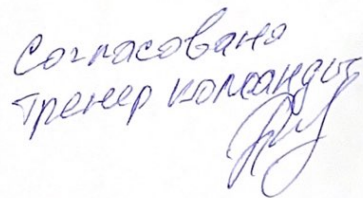 Согласовано
тренер команды